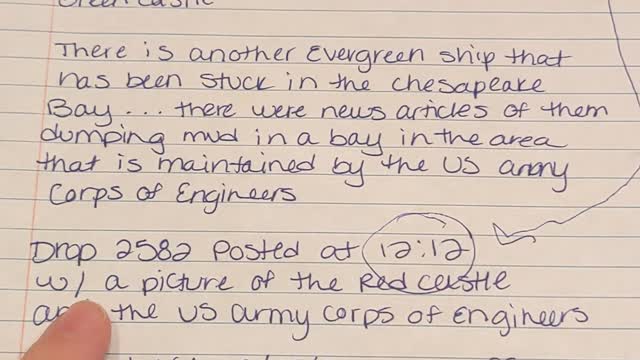 There is another Evergreen ship that
has been stuck in the chesapeake
Bay... there were news articles of them
dumping mud in a bay in the area
that is maintained by the US army
Corps of Engineers
Drop 2582 Posted at 12:12
w/ a picture of the Red castle
the US army corps of Engineers